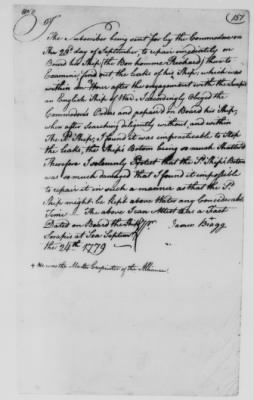 157
The Subscriber being sent for by the Commodore on
the 24th day of September, to repair immediately on
Board his Ship (the Bon homme Richard) there to
Examine & find out the Leaks of his Ship, which was
within an Hour after the engagement with the Serapis
an English Ship of War, I accordingly obeyed the
Commodores Orders and repaired on Board his Ship,
when after Searching diligently without, and within
the Sd. Ship, I found it was impracticable to Stop
the Leaks, the Ships Bottom being so much Shattered
Therefore I solemnly Protest that the Sd. Ships Bottom
was so much damaged that I found it impossible
to repair it in such a manner as that the Sd.
Ship might be kept above Water any Considerable
Time. The above I can Attest to as a Fact
Dated on Board the Ship
James Bragg
Serapis at Sea Septemr.
the 24th 1779
+ He was the Master Carpenter of the Alliance.